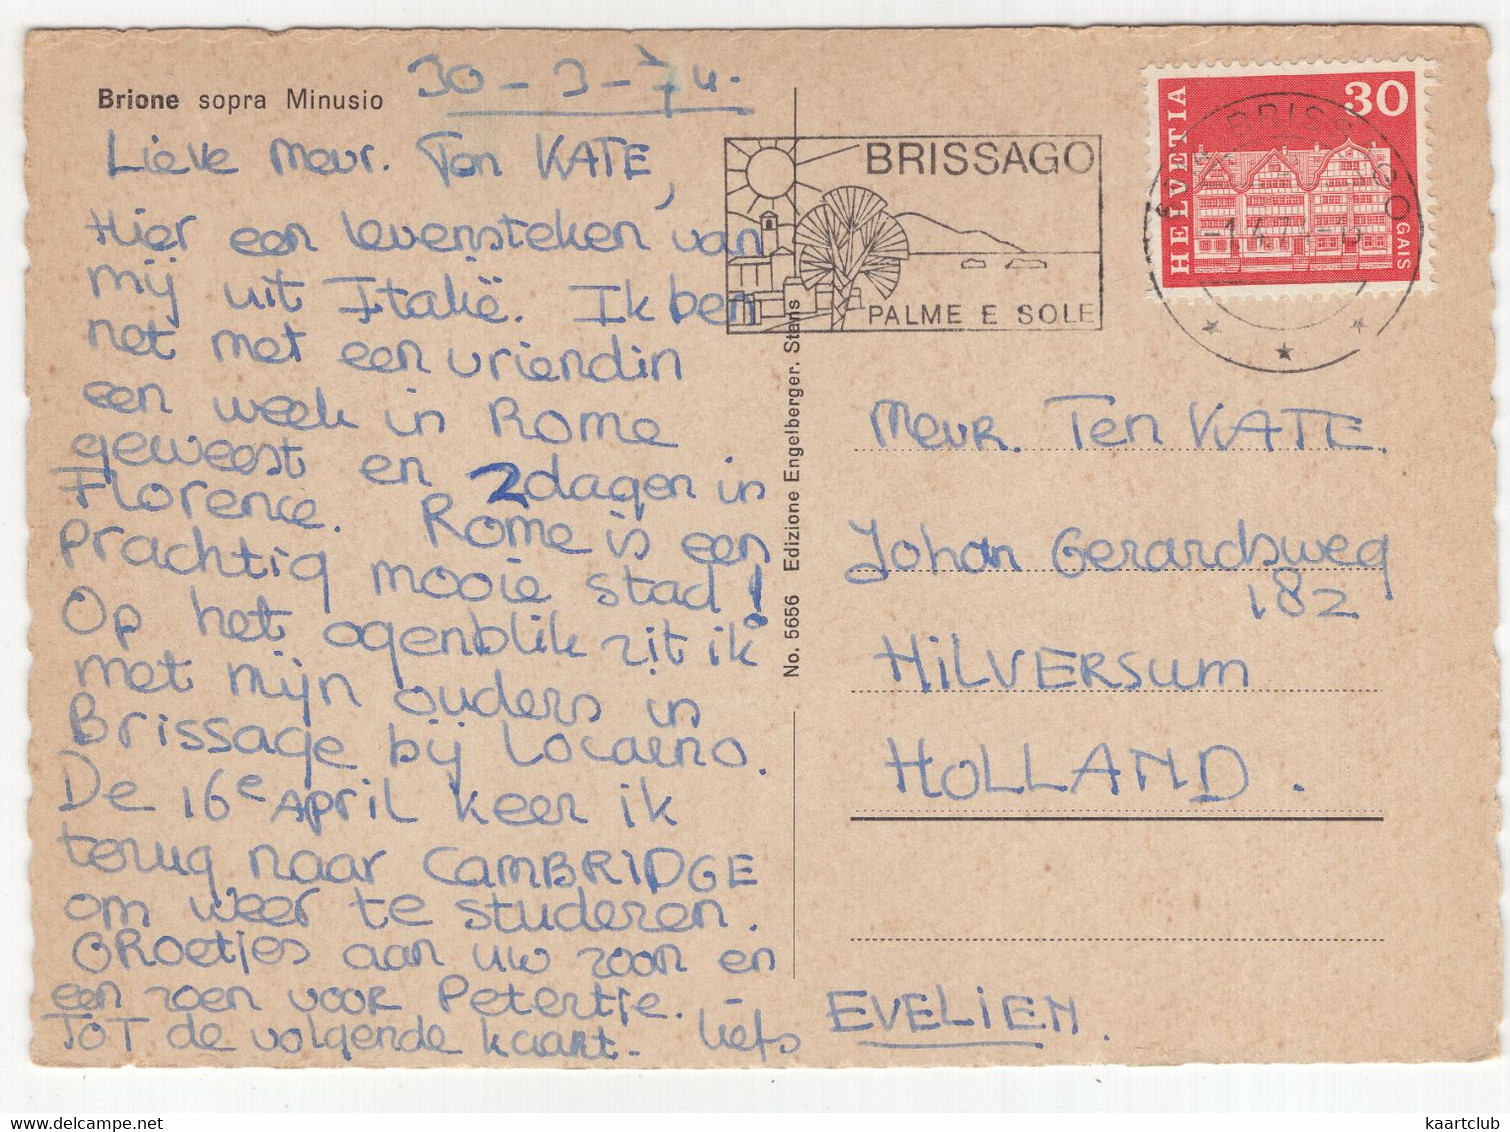 Brione sopra Minusio
30-3-74.
Lieve Mevr. Ten KATE,
Hier een levensteken van
mij uit Italië. Ik ben
net met een vriendin
een week in Rome
geweest en 2 dagen in
Florence. Rome is een
prachtig mooie stad!
Op het ogenblik zit ik
met mijn ouders in
Brissage bij Locarno.
De 16e April keer ik
terug naar CAMBRIDGE
om weer te studeren.
GRoetjes aan uw zoon en
een zoen voor Petertje.
TOT de volgende kaart. liefs EVELIEN.
No. 5656 Edizione Engelberger. Stans
BRISSAGO
PALME E SOLE
HELVETIA
30
GAIS
BRISSAGO
Mevr. Ten KATE.
Johan Gerardsweg
182
HILVERSUM
HOLLAND.
kaartclub